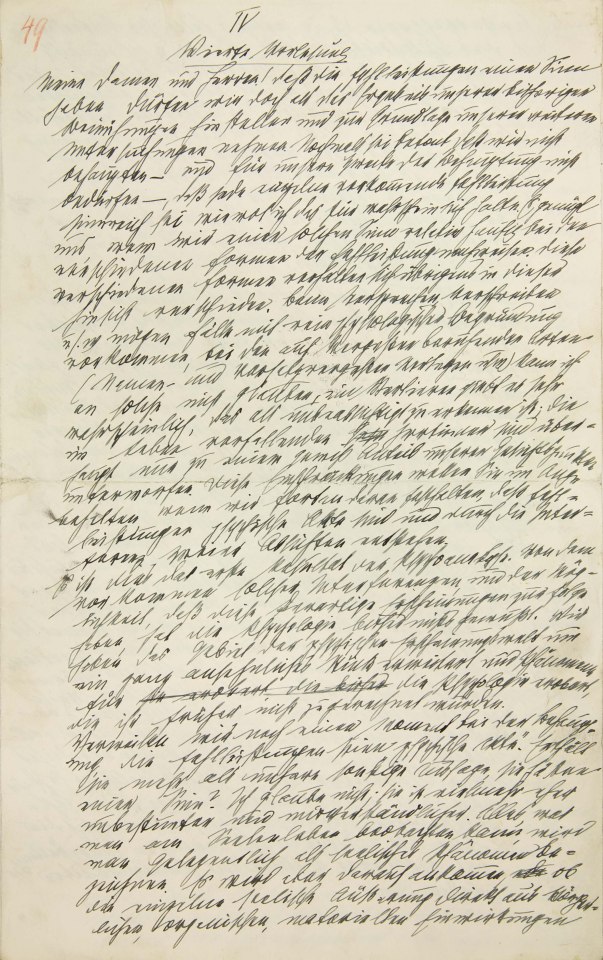 49
IV
Vierte Vorlesung
Meine Damen und Herren, daß die Fehlleistungen einen Sinn
haben, dürfen wir doch als das Ergebnis unserer bisherigen
Bemühungen hinstellen und zur Grundlage unserer weiteren
Untersuchungen nehmen. Nochmals sei betont, daß wir nicht
behaupten – und für unsere Zwecke der Behauptung nicht
bedürfen –, daß jede einzelne vorkommende Fehlleistung
sinnreich sei, wiewohl ich das für wahrscheinlich halte. Es genügt
uns, wenn wir einen solchen Sinn relativ häufig bei den
verschiedenen Formen der Fehlleistung nachweisen. Diese
verschiedenen Formen verhalten sich übrigens in dieser
Hinsicht verschieden. Beim Versprechen, Verschreiben
usw. mögen Fälle mit rein physiologischer Begründung
vorkommen, bei den auf Vergessen beruhenden Arten
(Namen- und Vorsatzvergessen, Verlegen usw.) kann ich
an solche nicht glauben, ein Verlieren gibt es sehr
wahrscheinlich, das als unbeabsichtigt zu erkennen ist; die
im Leben vorfallenden Irrtümer sind über-
haupt nur zu einem gewissen Anteil unseren Gesichtspunkten
unterworfen. Diese Einschränkungen wollen Sie im Auge
behalten, wenn wir fortan davon ausgehen, daß Fehl-
leistungen psychische Akte sind und durch die Inter-
ferenz zweier Absichten entstehen.
Es ist dies das erste Resultat der Psychoanalyse. Von dem
Vorkommen solcher Interferenzen und der Mög-
lichkeit, daß diese derartige Erscheinungen zur Folge
haben, hat die Psychologie bisher nichts gewußt. Wir
haben das Gebiet der psychischen Erscheinungswelt um
ein ganz ansehnliches Stück erweitert und Phänomene
für die Psychologie erobert,
die ihr früher nicht zugerechnet wurden.
Verweilen wir noch einen Moment bei der Behaup-
tung, die Fehlleistungen seien psychische Akte. Enthält
sie mehr als unsere sonstige Aussage, sie haben
einen Sinn? Ich glaube nicht; sie ist vielmehr eher
unbestimmter und mißverständlicher. Alles, was
man am Seelenleben beobachten kann, wird
man gelegentlich als seelisches Phänomen be-
zeichnen. Es wird aber darauf ankommen, ob
die einzelne seelische Äußerung direkt aus körper-
lichen, organischen, materiellen Einwirkungen